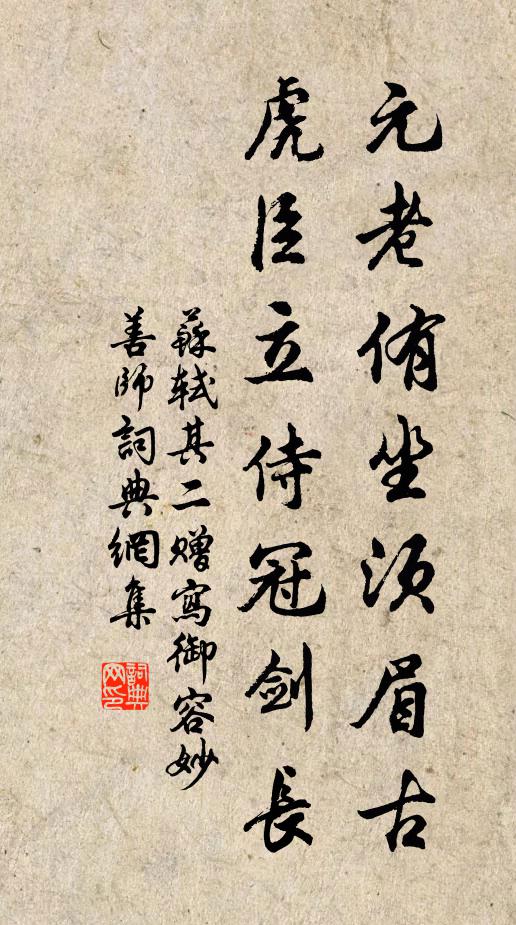 元老侑坐須眉古
虎臣立侍冠劍長
蘇軾其二贈寫御容妙
善師詞典網集
詞典
网印